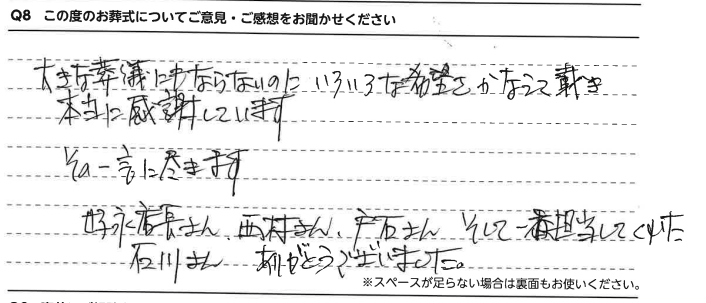 Q8 この度のお葬式についてご意見・ご感想をお聞かせください
大きな葬儀にもならないのに いろいろな希望をかなえて戴き
本当に感謝しています
その一言に尽きます
好永店長さん、西村さん、戸石さん そして一番担当してくれた
石川さん ありがとうございました。
※スペースが足らない場合は裏面もお使いください。